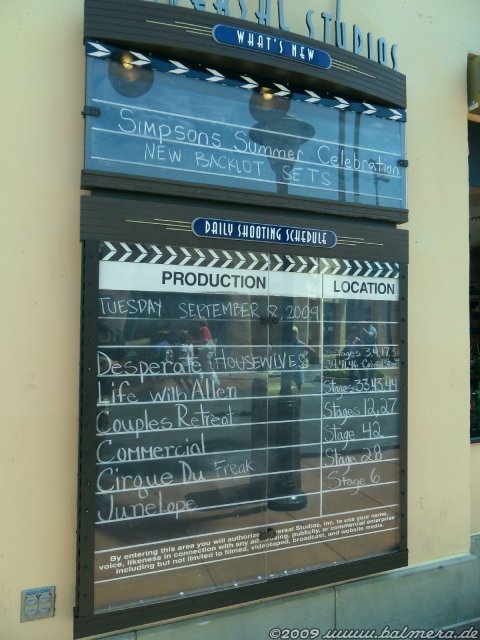 UNIVERSAL STUDIOS
WHAT'S NEW
Simpsons Summer Celebration
NEW BACKLOT SETS
DAILY SHOOTING SCHEDULE
PRODUCTION LOCATION
TUESDAY SEPTEMBER 8, 2009
Desperate HOUSEWIVES Stages 3,4,17,31
Life with Allen Stages 33,43,44
Couples Retreat Stages 12,27
Commercial Stage 42
Cirque Du Freak Stage 28
Junelope Stage 6
By entering this area you will authorize Universal Studios, Inc. to use your name,
voice, likeness in connection with any advertising, publicity, or commercial enterprise
including but not limited to filmed, videotaped, broadcast, and website media.
©2009 www.balmera.de